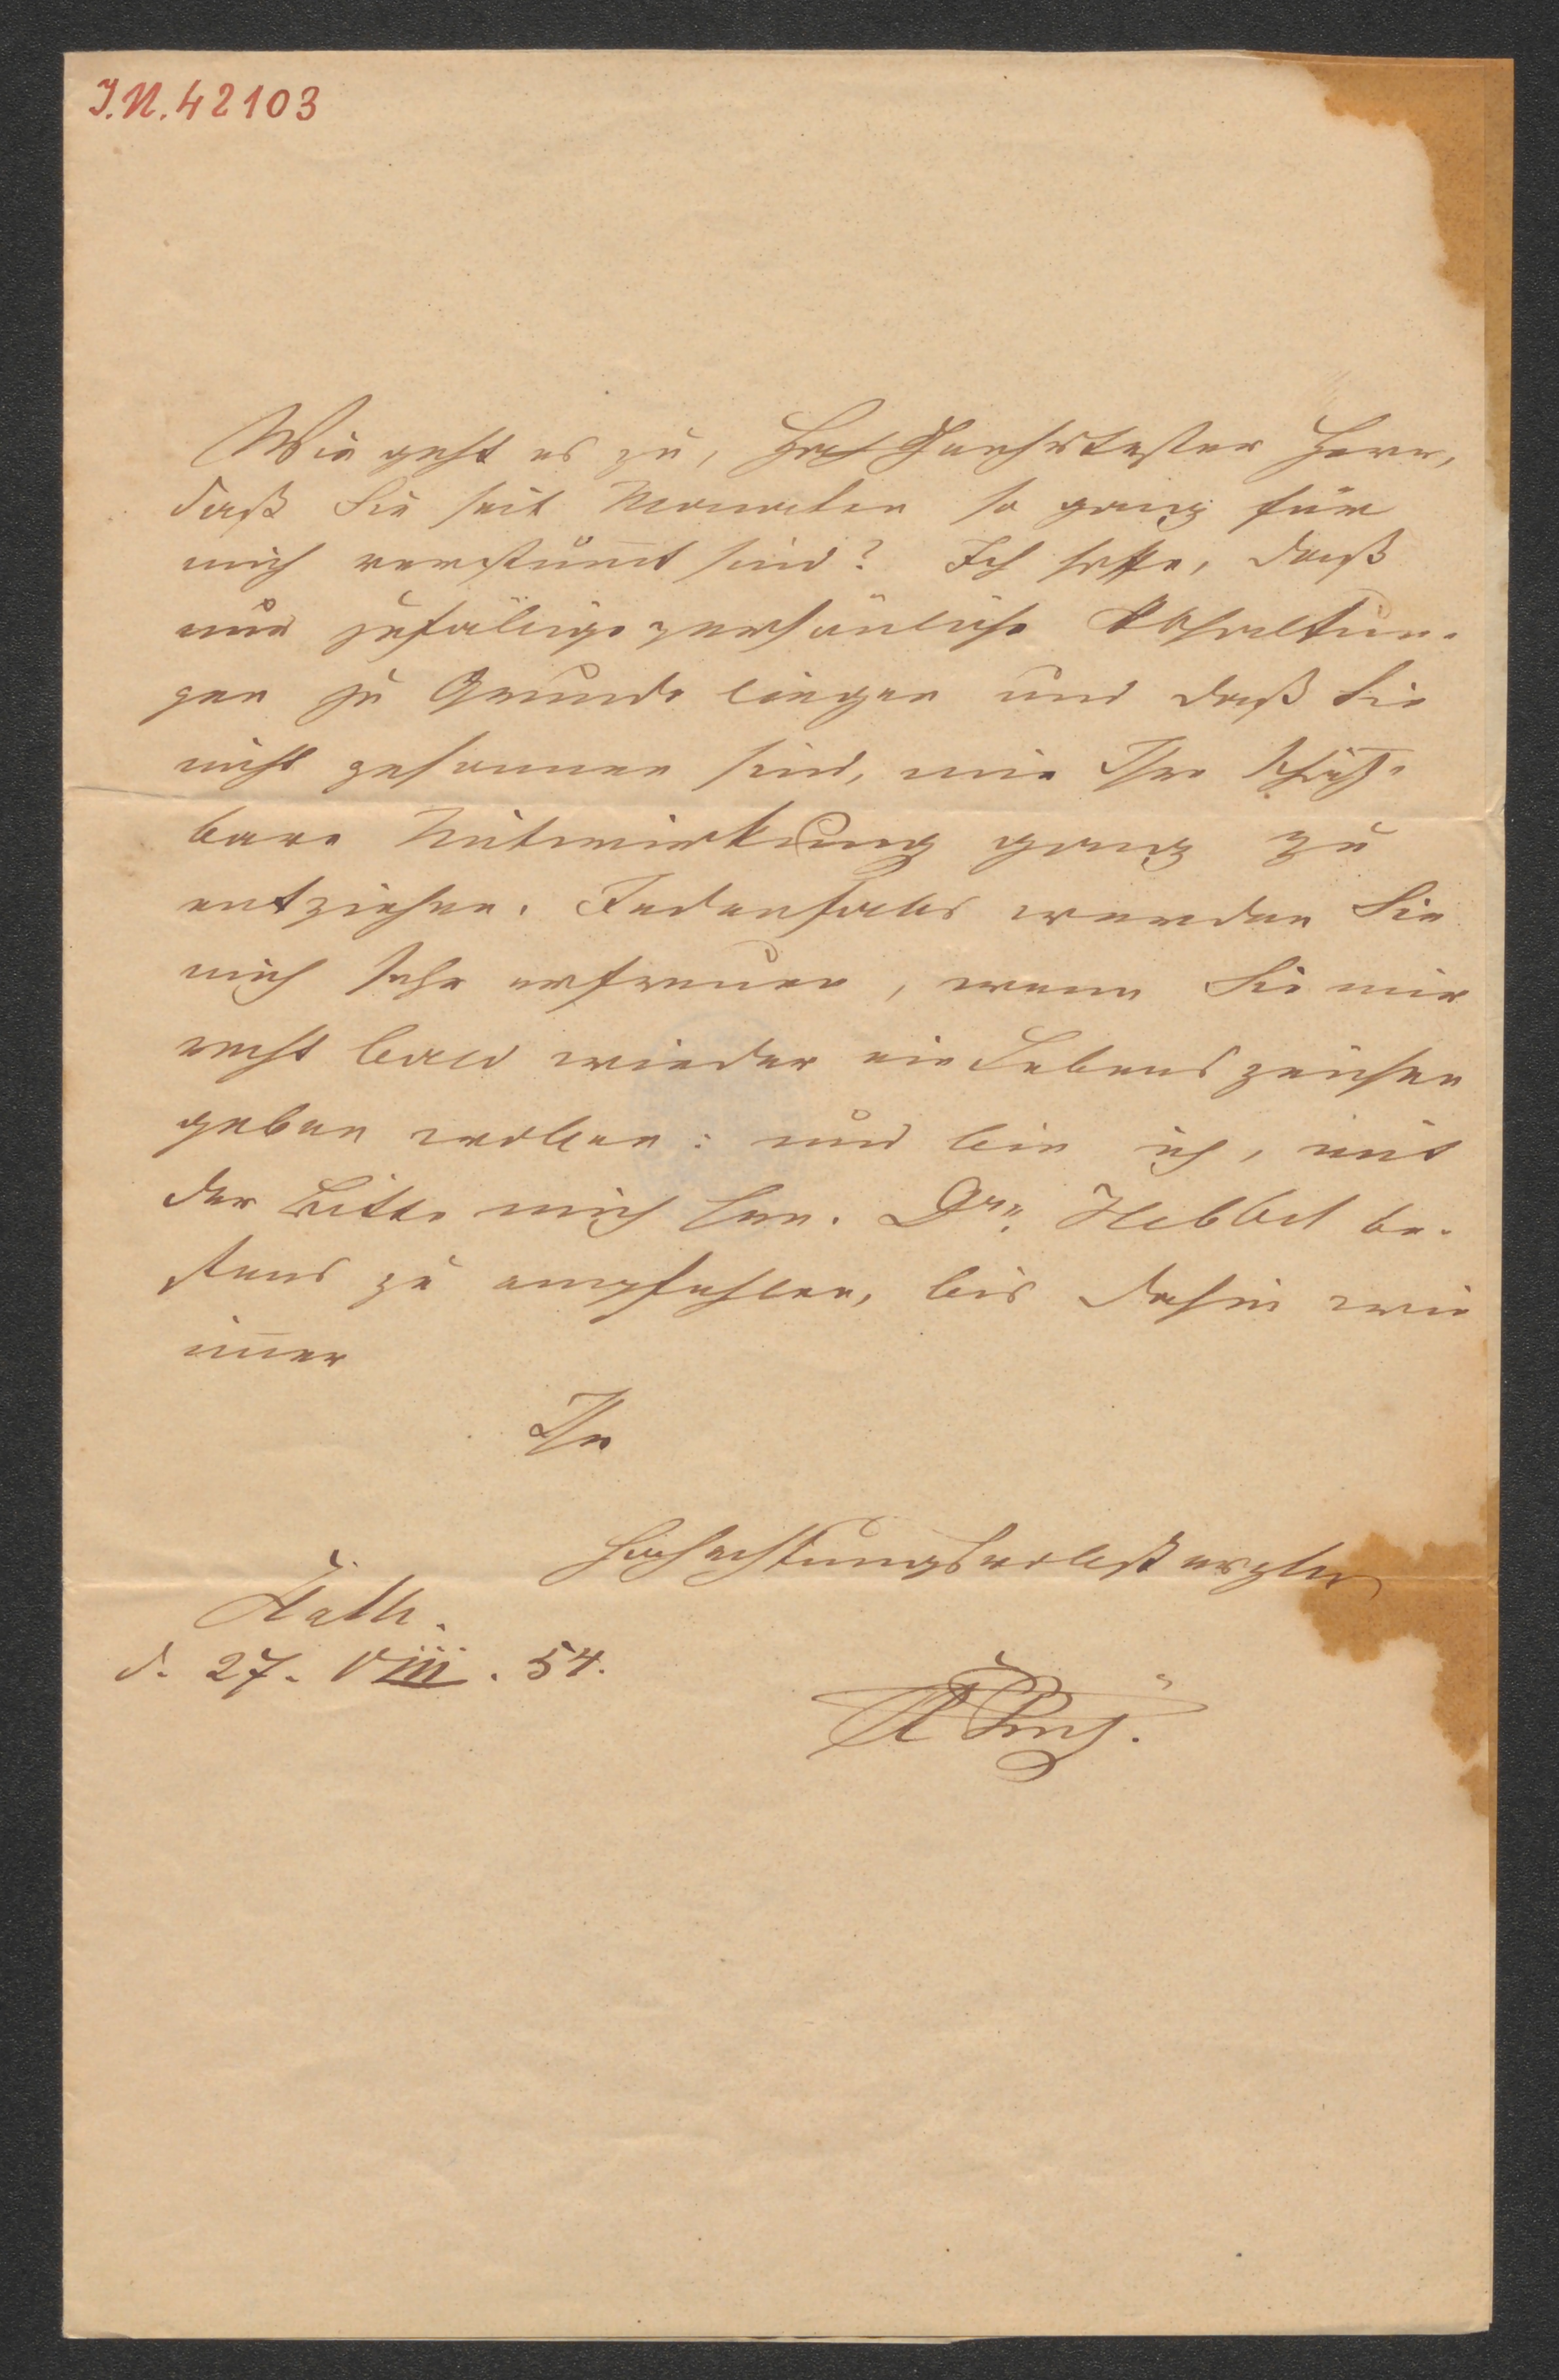 I.N. 42103
Wie geht es zu, Geehrtester Herr,
daß Sie seit Monaten so ganz für
mich verstum̅t sind? Ich hoffe, daß
nur zufällige persönliche Abhaltun-
gen zu Grunde liegen und daß Sie
nicht gesonnen sind, mir Ihre schätz-
bare Mitwirkung ganz zu
entziehen. Jedenfalls werden Sie
mich sehr erfreuen, wenn Sie mir
recht bald wieder ein Lebenszeichen
geben wollen: und bin ich, mit
der Bitte mich Hrn. Dr. Hebbel be-
stens zu empfehlen, bis dahin wie
im̅er
Ihr
hochachtungsvollst ergbn
Halle.
d. 27. VIII. 54.
R Prutz.